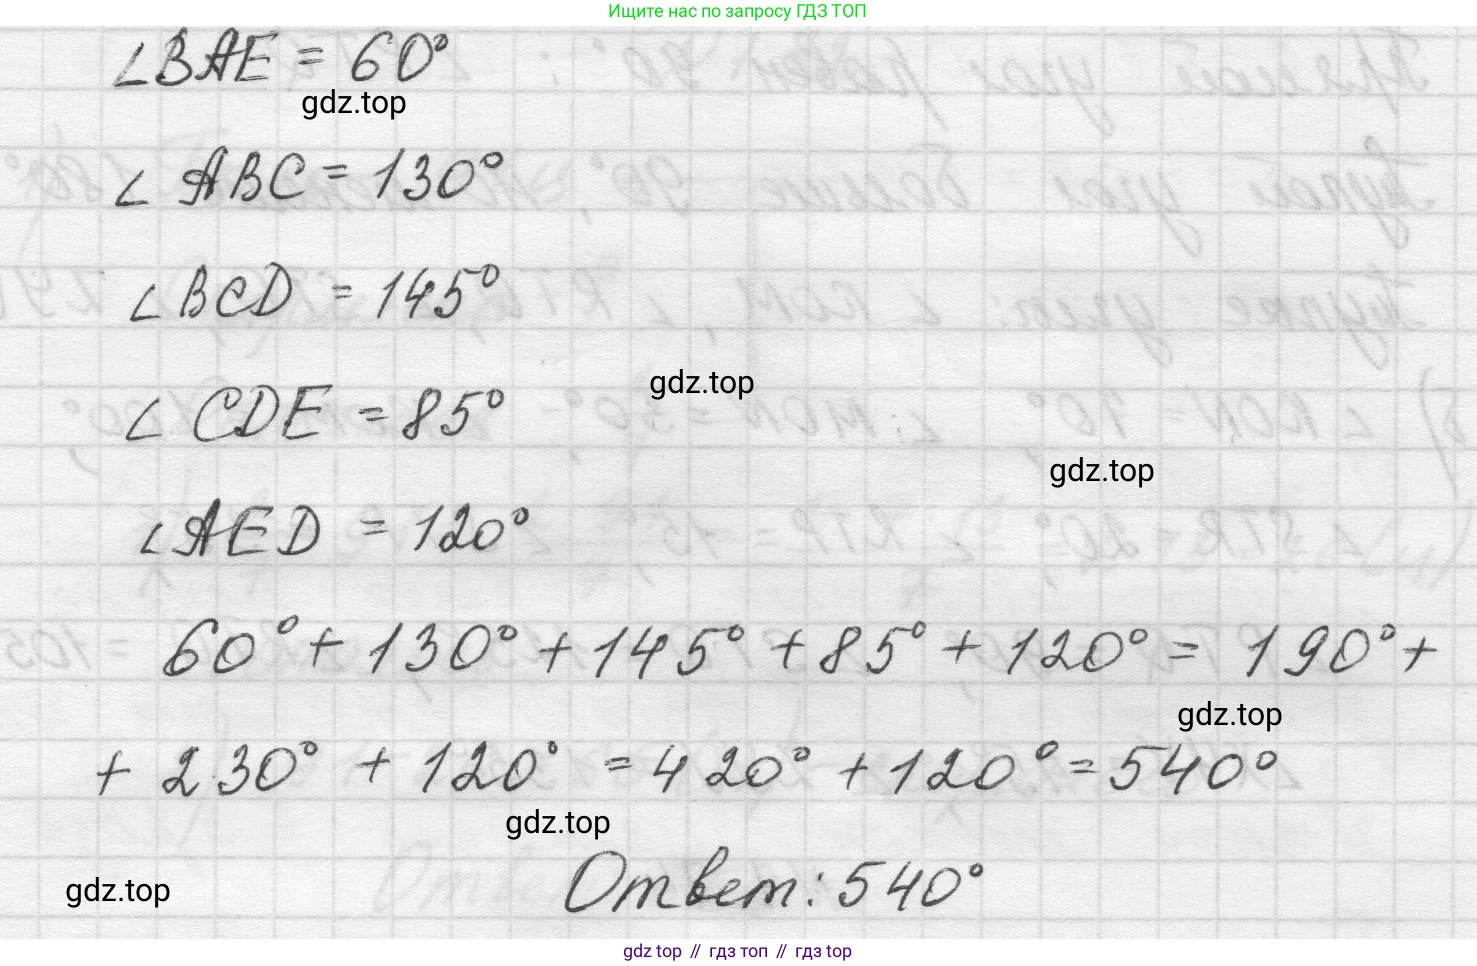 Ищите нас по запросу ГДЗ ТОП
∠BAE = 60°
gdz.top
∠ABC = 130°
∠BCD = 145°
gdz.top
∠CDE = 85°
gdz.top
∠AED = 120°
60° + 130° + 145° + 85° + 120° = 190° +
gdz.top
+ 230° + 120° = 420° + 120° = 540°
gdz.top
Ответ: 540°
gdz.top
gdz top // гдз топ // гдз top